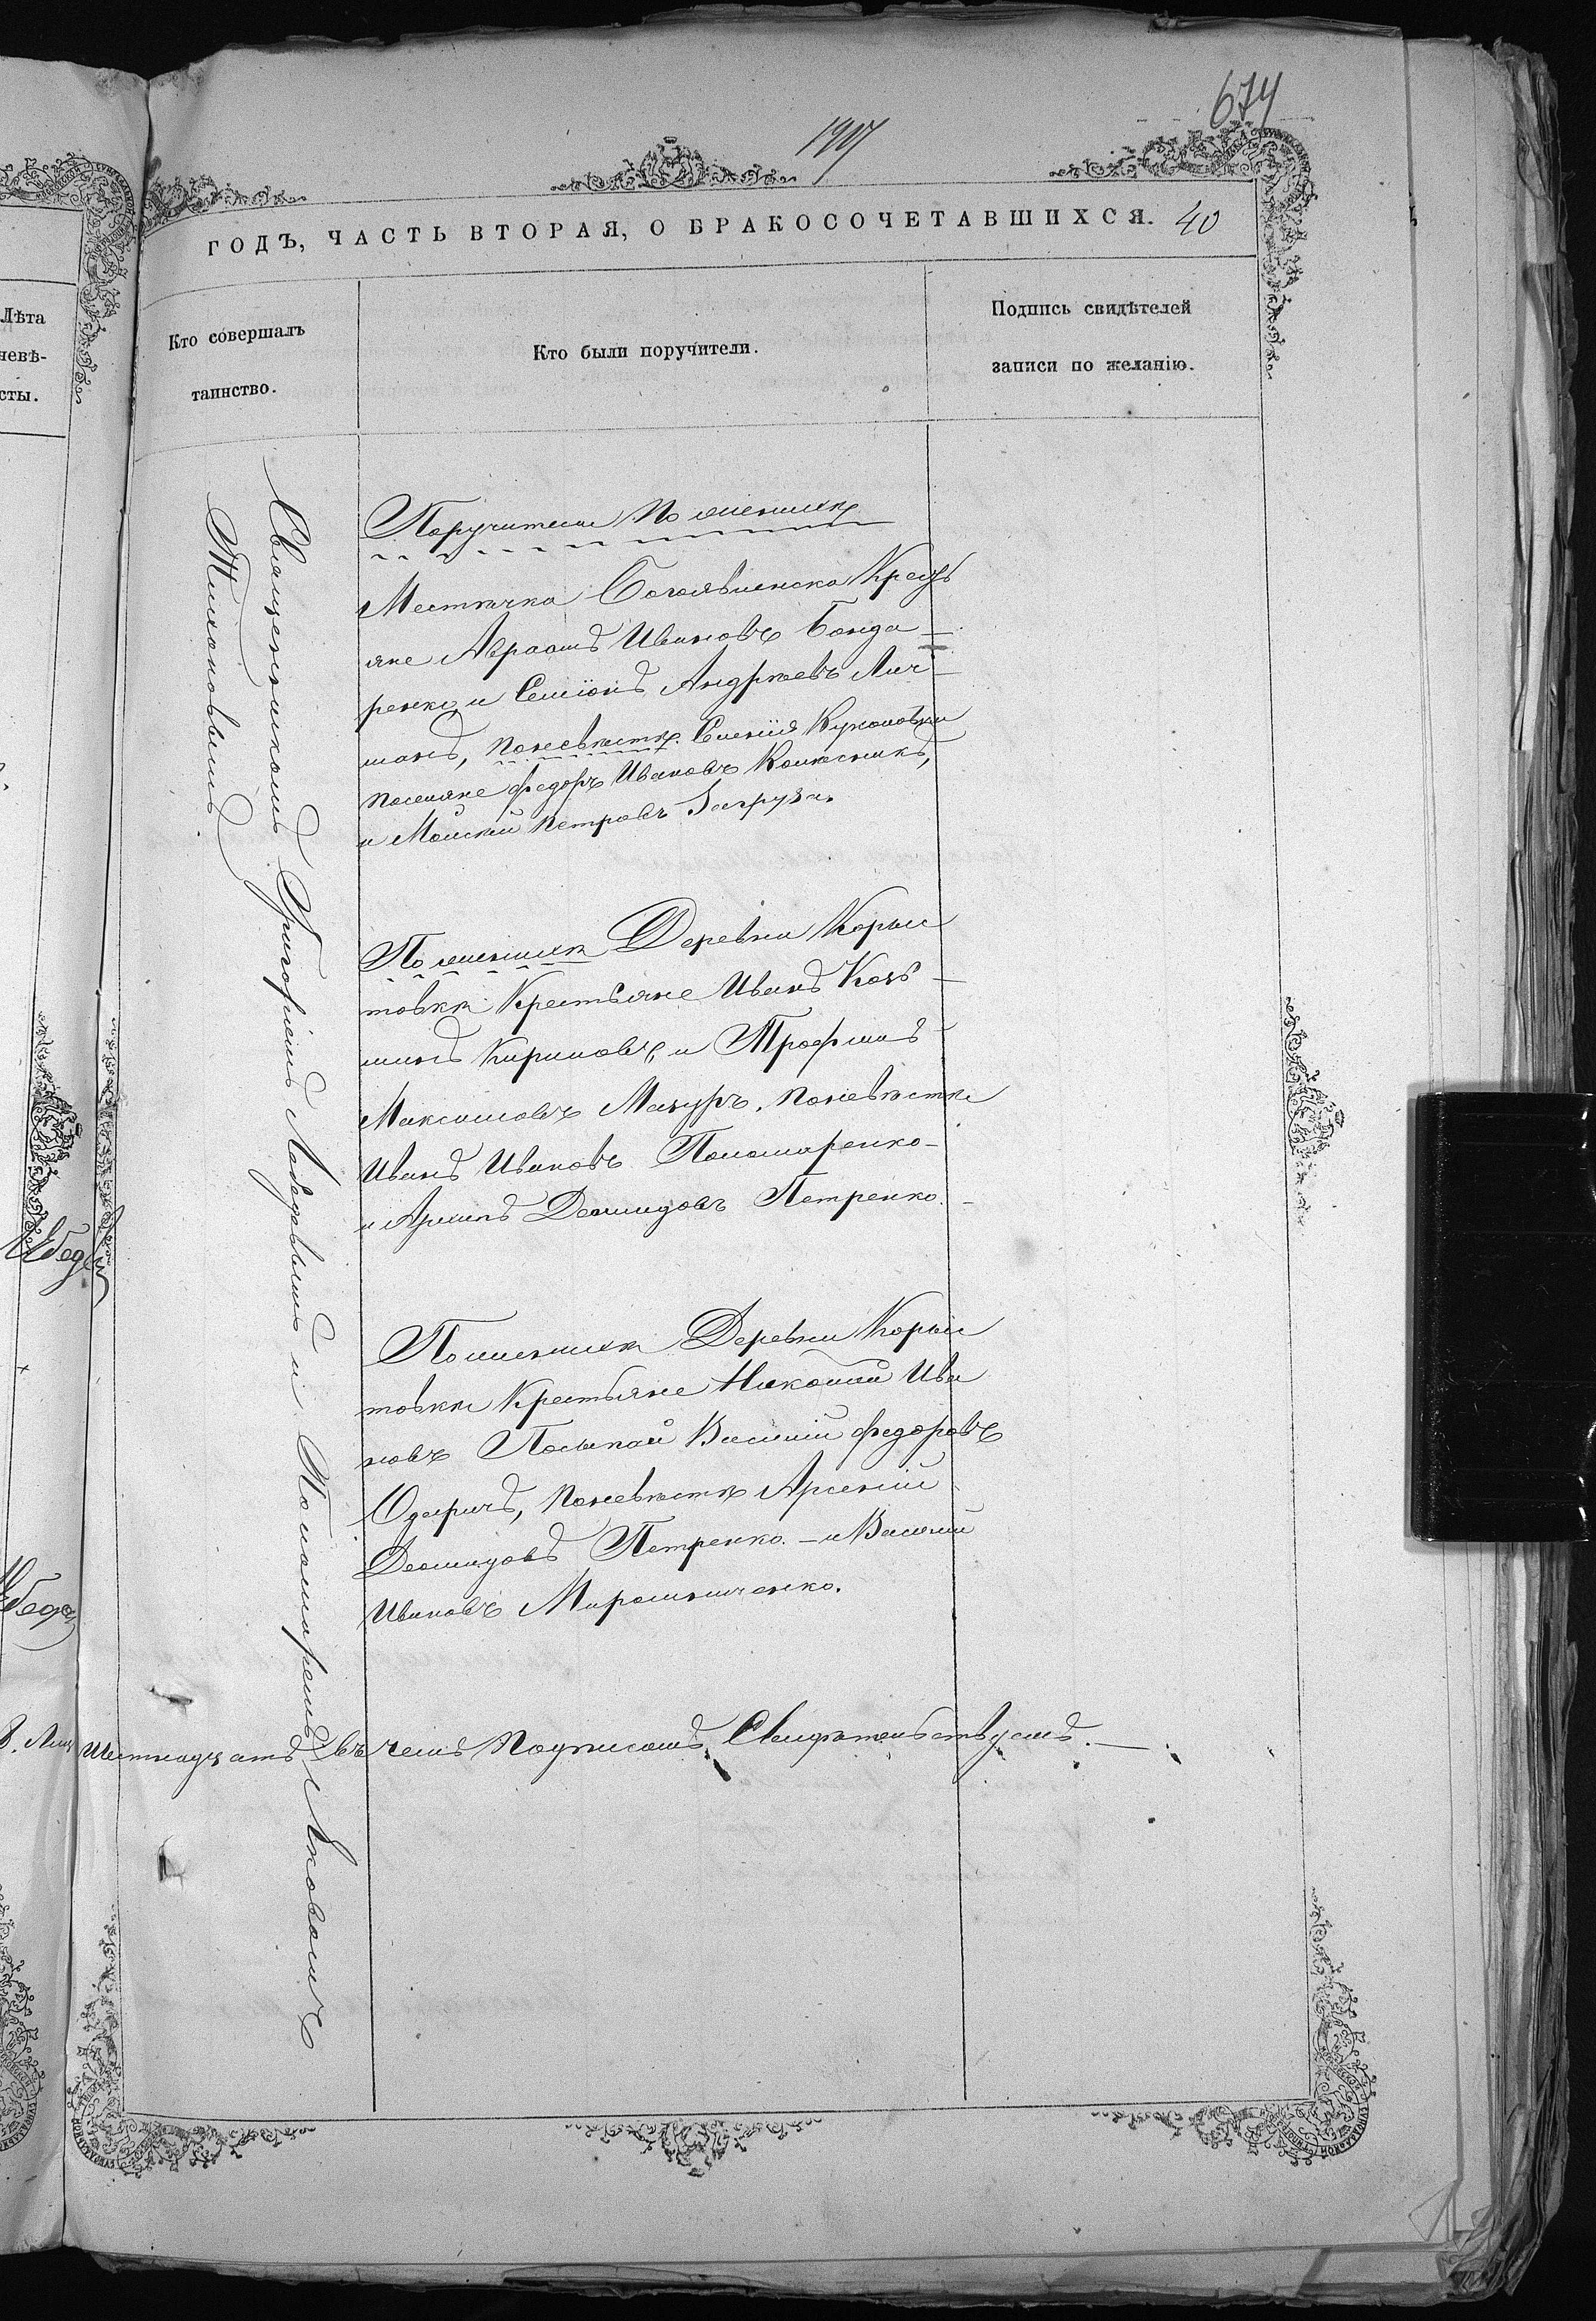 674
1907
ГОДЪ, ЧАСТЬ ВТОРАЯ, О БРАКОСОЧЕТАВШИХСЯ. 40
Лѣта
невѣ-
сты.
Кто совершалъ
таинство.
Кто были поручители.
Подпись свидѣтелей
записи по желанію.
Священникомъ Григоріемъ Лебедевымъ и Пономаремъ Яковомъ
Тихоновымъ
Поручители По женихѣ
Местечка Богоявленска Кресть
яне Авраамъ Ивановъ Бонда-
ренко и Семіонъ Андреевъ Лич-
манъ, поневѣстѣ. Селенія
поселяне Федоръ Ивановъ Колесникъ,
и Моисей Петровъ Загруза.
По женихѣ Деревни Корые
товки Крестьяне Иванъ Козь-
минъ Кириловъ, и Трофимъ
Максимовъ Мазуръ. поневѣстѣ
Иванъ Ивановъ Пономаренко-
и Архипъ Демидовъ Петренко.-
По женихѣ Деревни Корые
товки Крестьяне Николай Ива
новъ Василій Федоровъ
поневѣстѣ Арсеній
Демидовъ Петренко.-и Василій
Ивановъ Мирошниченко.
шестнадцать въ чемъ подписомъ Свидѣтельствуемъ.-